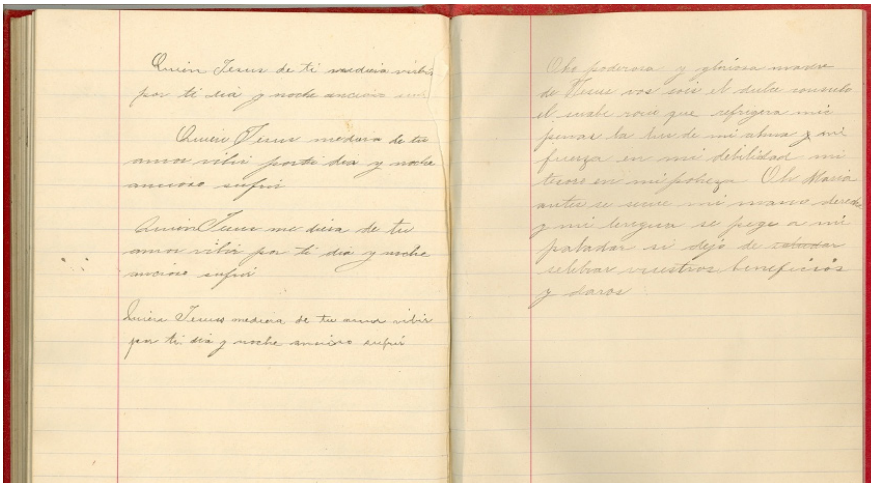 Quien Jesus de ti mediera vibir
por ti dia y noche ancioso
Quien Jesus mediera de tu
amor vibir por ti dia y noche
ancioso sufrir
Quien Jesus me diera de tu
amor vibir por ti dia y noche
ancioso sufrir
Quien Jesus mediera de tu amor vibir
por ti dia y noche ancioso sufrir
Oho poderosa y gloriosa madre
de Jesus vos sois el dulce consuelo
el suabe rocio que refrigera mis
penas la luz de mi alma y mi
fuerza en mi debilidad mi
tesoro en mi pobeza Oh Maria
antes se seque mi mano derecha
y mi lengua se pege a mi
paladar si dejo de
celebrar vuestros beneficios
y daros